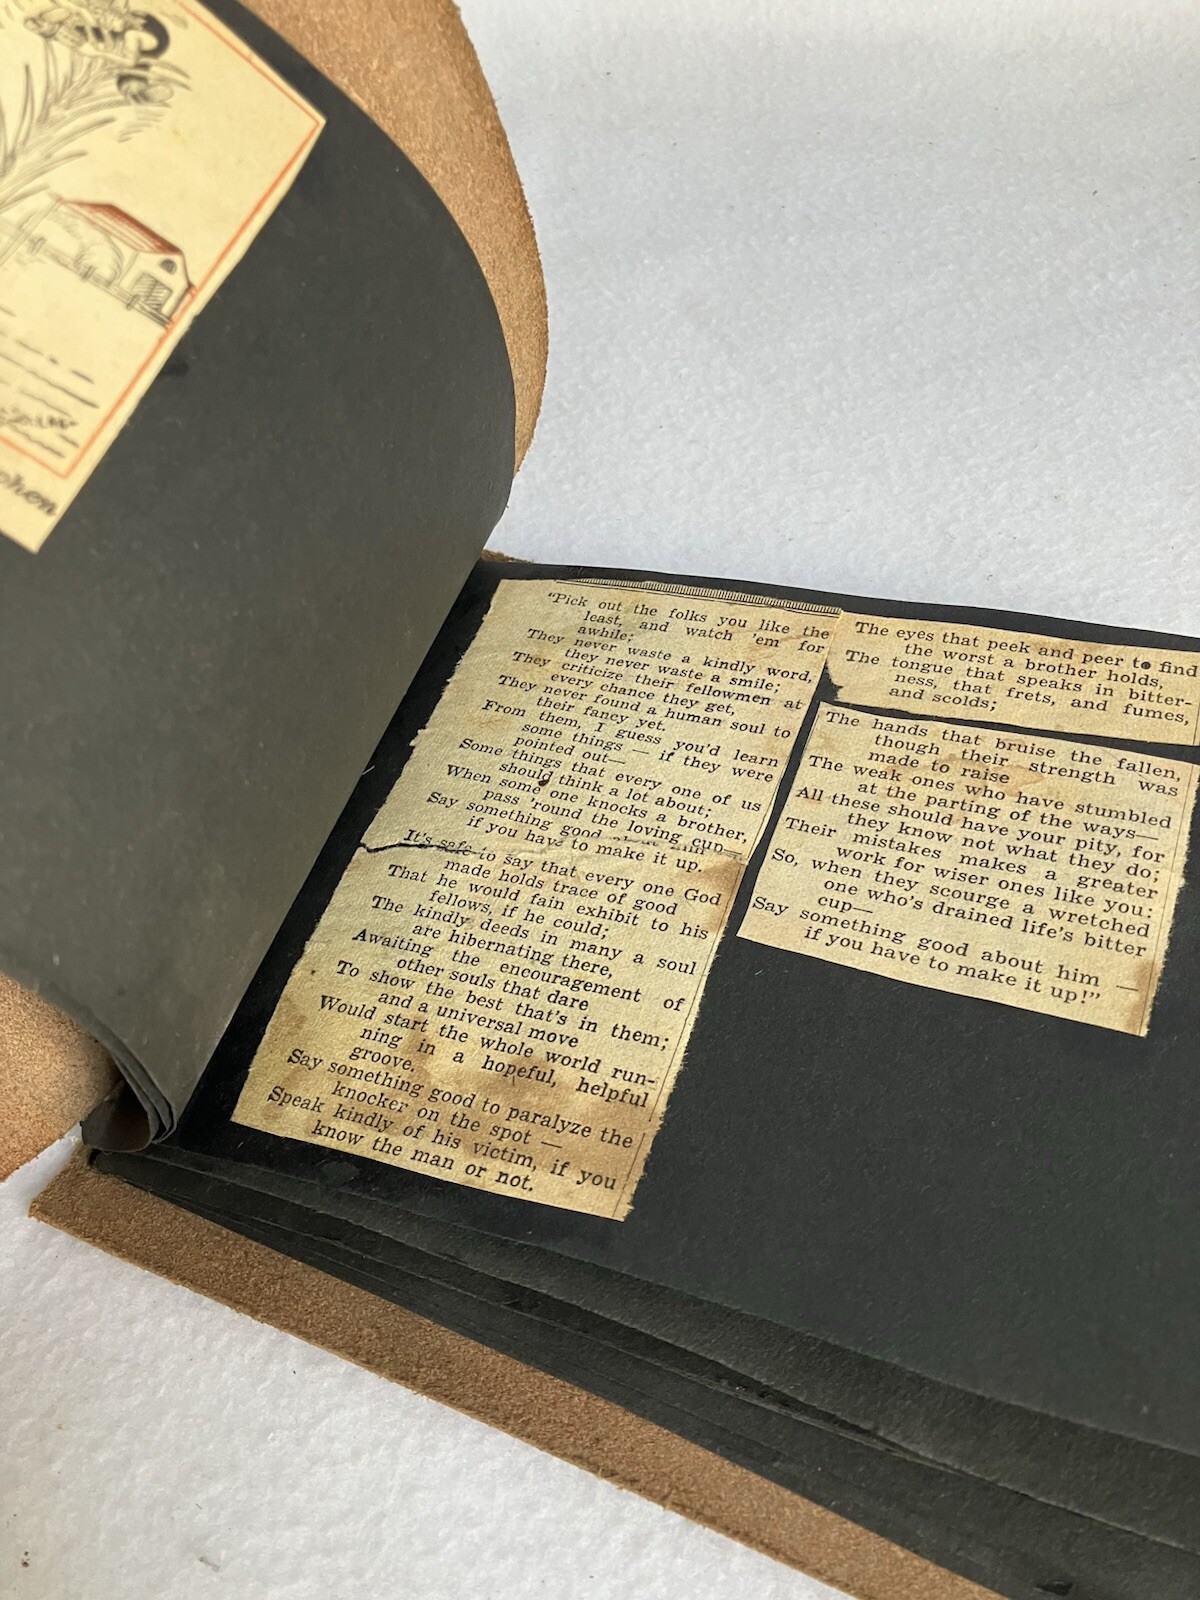 phen
"Pick out the folks you like the
least, and watch 'em for
awhile;
They never waste a kindly word,
they never waste a smile;
They criticize their fellowmen at
every chance they get,
They never found a human soul to
their fancy yet.
From them, I guess you'd learn
some things — if they were
pointed out—
Some things that every one of us
should think a lot about;
When some one knocks a brother,
pass 'round the loving cup—
Say something good about him
if you have to make it up.
It's safe to say that every one God
made holds trace of good
That he would fain exhibit to his
fellows, if he could;
The kindly deeds in many a soul
are hibernating there,
Awaiting the encouragement of
other souls that dare
To show the best that's in them;
and a universal move
Would start the whole world run-
ning in a hopeful, helpful
groove.
Say something good to paralyze the
knocker on the spot —
Speak kindly of his victim, if you
know the man or not.
The eyes that peek and peer to find
the worst a brother holds,
The tongue that speaks in bitter-
ness, that frets, and fumes,
and scolds;
The hands that bruise the fallen,
though their strength was
made to raise
The weak ones who have stumbled
at the parting of the ways—
All these should have your pity, for
they know not what they do;
Their mistakes makes a greater
work for wiser ones like you:
So, when they scourge a wretched
one who's drained life's bitter
cup—
Say something good about him —
if you have to make it up!"